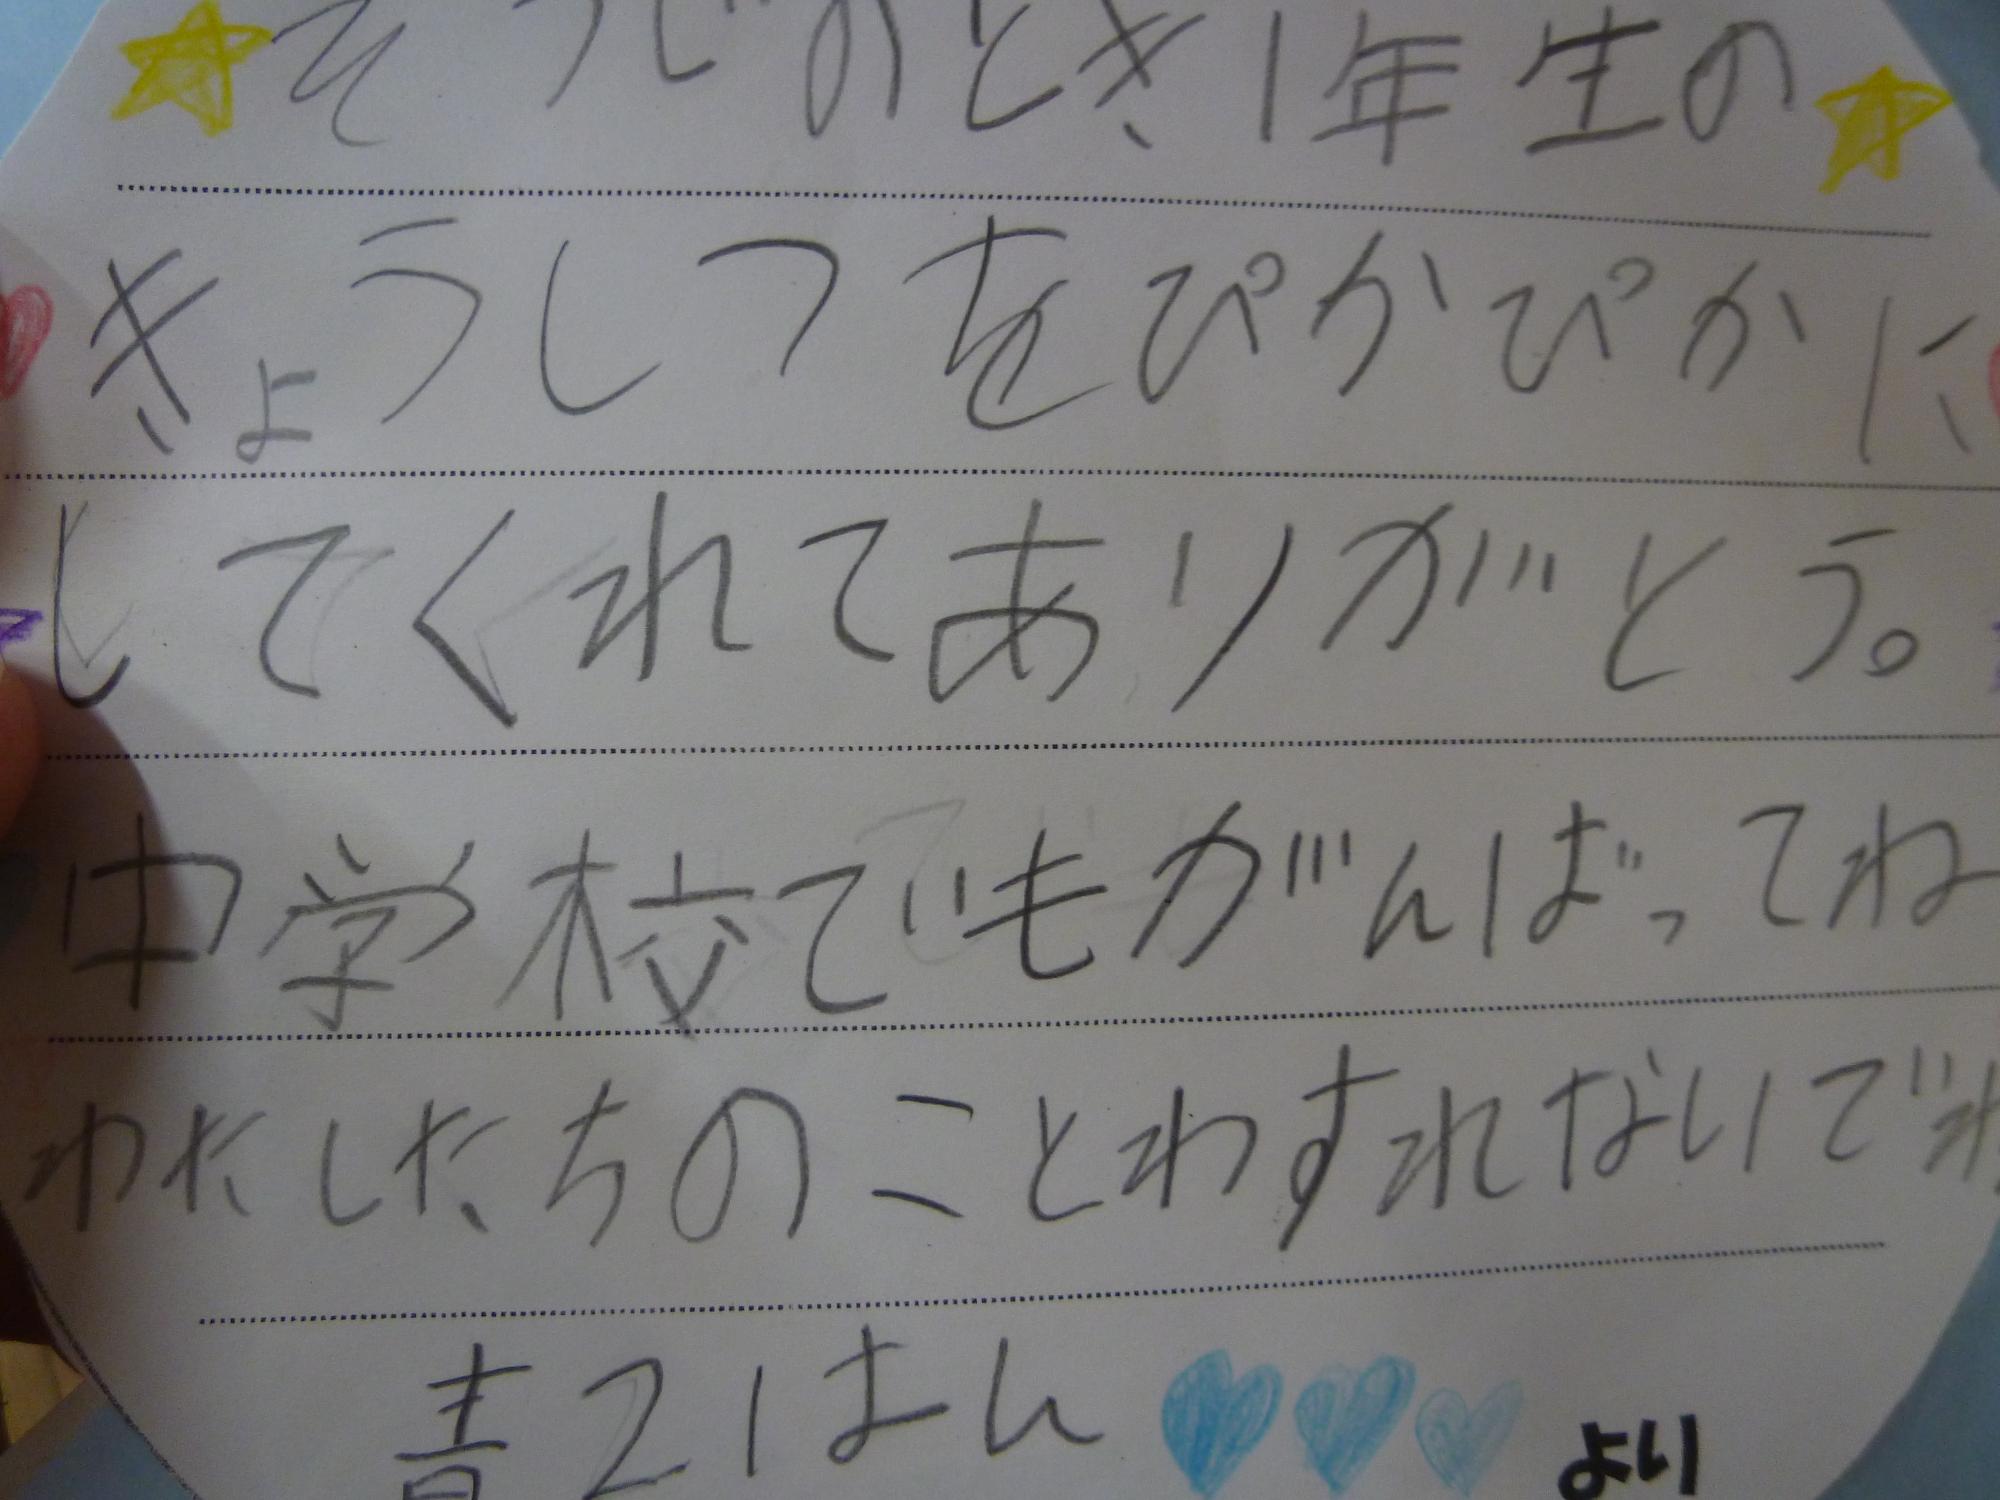 そうじのとき1年生の
きょうしつをぴかぴかに
してくれてありがとう。
中学校でもがんばってね
わたしたちのことわすれないでね
青2はん
より